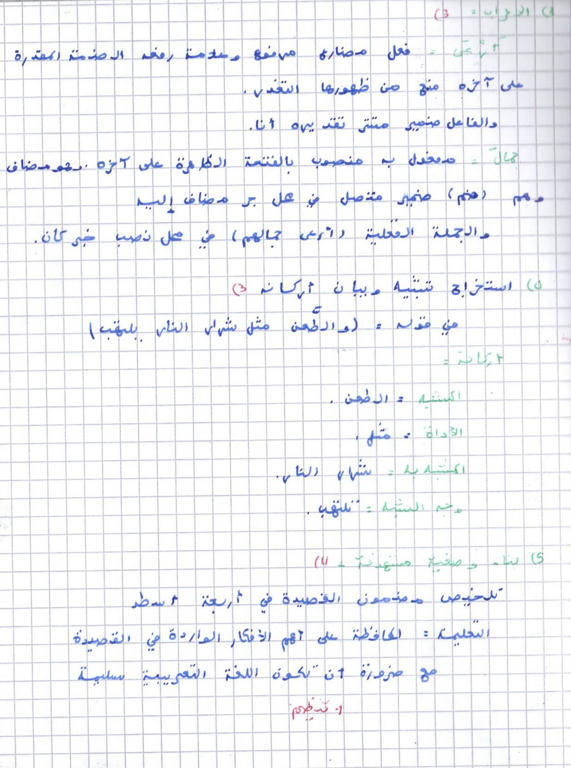 3) الإعراب : (3
أرعى : فعل مضارع مرفوع وعلامة رفعه الضمة المقدرة
على آخره منع من ظهورها التعذر.
والفاعل ضمير مستتر تقديره أنا.
جمالَ : مفعول به منصوب بالفتحة الظاهرة على آخره وهو مضاف
وهم (هم) ضمير متصل في محل جر مضاف إليه
والجملة الفعلية (أرعى جمالهم) في محل نصب خبر كان.
4) استخراج تشبيه وبيان أركانه (3
في قوله : (والطّعن مثل شرار النار يلتهب)
أركانه :
المشبه : الطعن .
الأداة : مثل .
المشبه به : شرار النار.
وجه الشبه : تلتهب .
5) بناء وضعية مستهدفة : (4
تلخيص مضمون القصيدة في أربعة أسطر
التعليمة : المحافظة على أهم الأفكار الواردة في القصيدة
مع ضرورة أن تكون اللغة التعبيرية سليمة